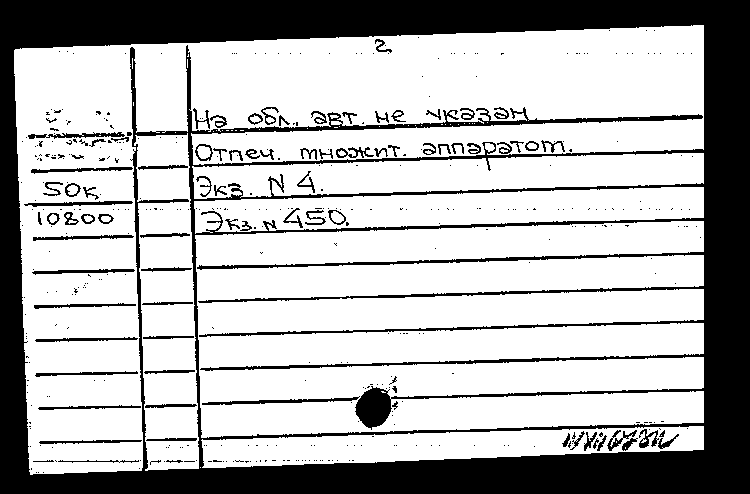 2
На обл. авт. не указан.
Отпеч. множит. аппаратом.
50к Экз. N 4.
10800 Экз. N 450.